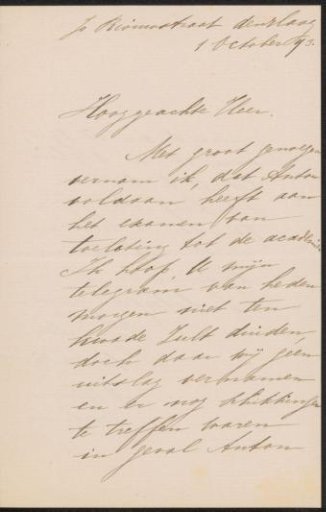 Riouwstraat den Haag
1 October 93.
Hooggeachte Heer.
Met groot genoegen
vernam ik, dat Anton
voldaan heeft aan
het examen van
toelating tot de academie
Ik hoop, U mijn
telegram van heden
morgen niet ten
kwade zult duiden,
doch daar wij geen
uitslag vernamen
en er nog schikkingen
te treffen waren
in geval Anton